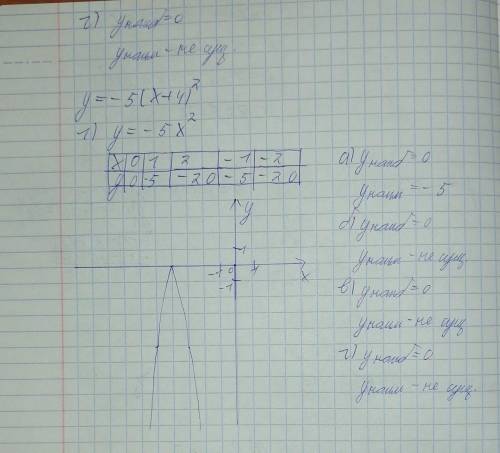 г) yнаиб=0
yнаим-не сущ.
y=-5(x+4)²
1) y=-5x²
x 0 1 2 -1 -2
y 0 -5 -20 -5 -20
а) yнаиб=0
yнаим=-5
б) yнаиб=0
yнаим-не сущ.
в) yнаиб=0
yнаим-не сущ
г) yнаиб=0
yнаим-не сущ.
y
1
-1 0 1
x
-1